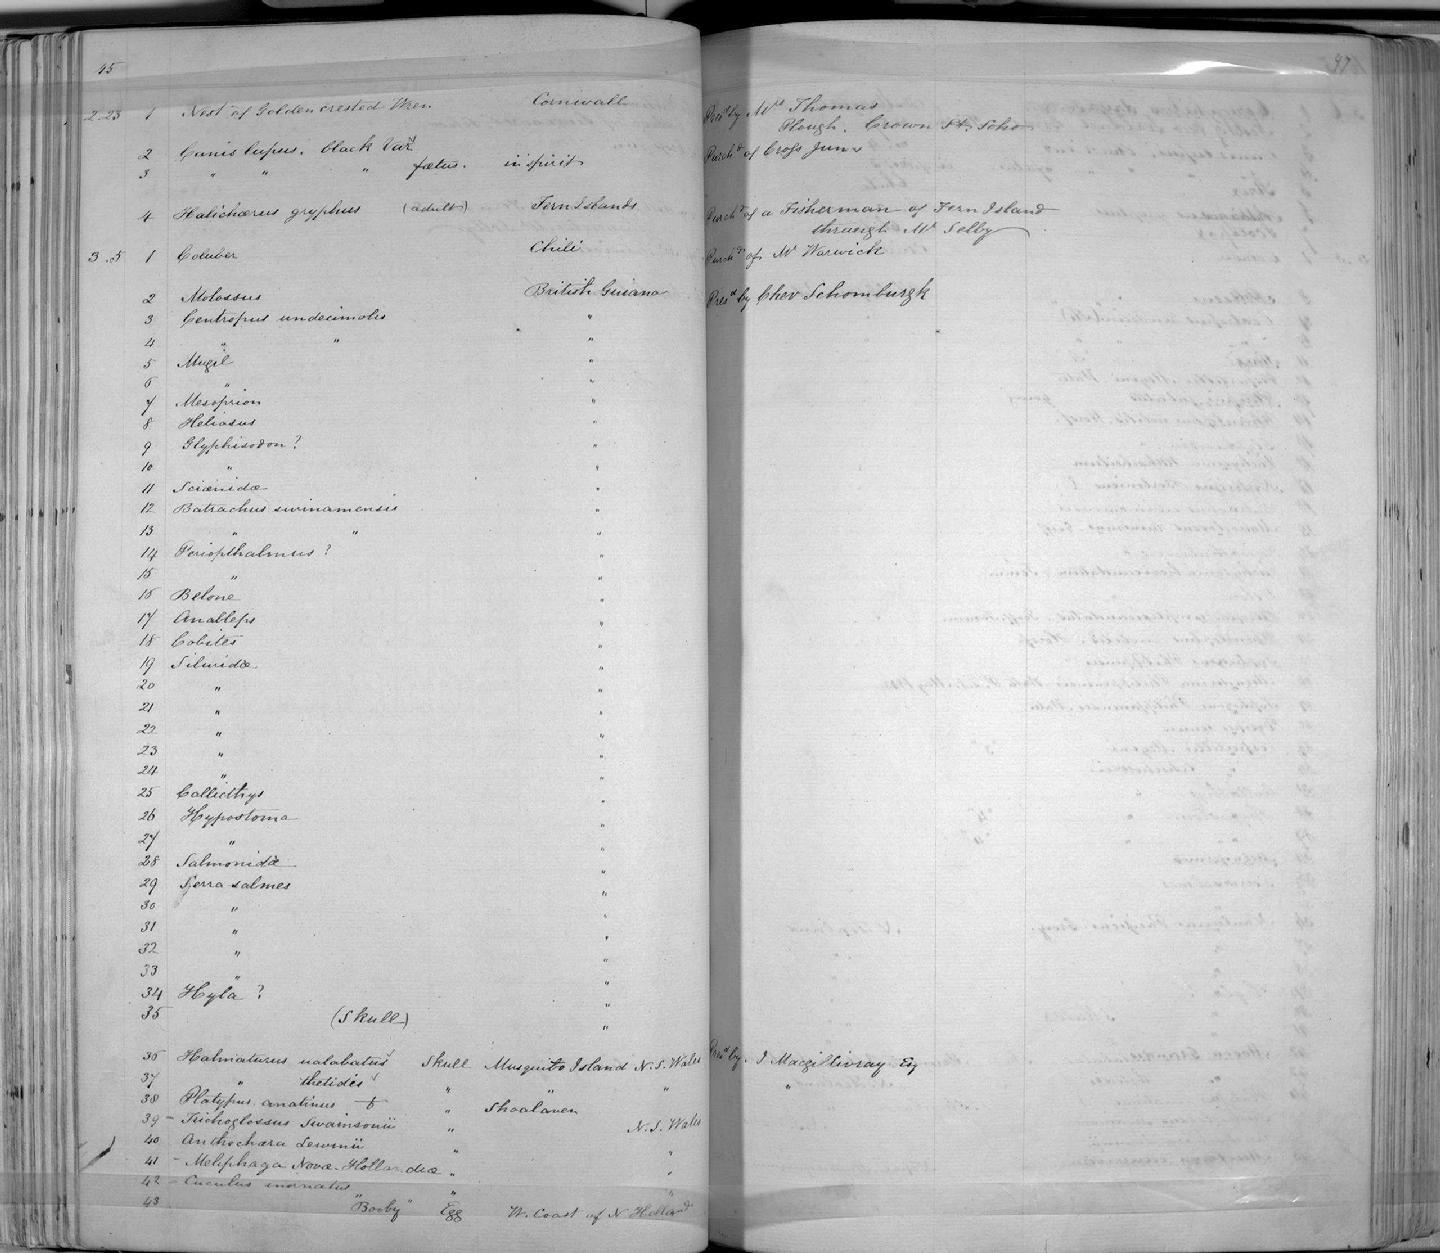 45
2.23 1 Nest of Golden crested Wren. Cornwall Presd by Mrs Thomas
Plough. Crown St. Soho
2 Canis lupus. black Var. Purchd of Cross Junr
3 " " " fœtus. in spirit
4 Halichœrus gryphus (adult) Fern Islands Purchd of a Fisherman of Fern Island
through Mr Selby
3.5 1 Coluber Chili Purchd of Mr Warwick
2 Molossus British Guiana Presd by Chev Schomburgk
3 Centropus undecimalis "
4 " " "
5 Mugil "
6 " "
7 Mesoprion "
8 Heliasus "
9 Glyphisodon? "
10 " "
11 Sciænidæ "
12 Batrachus surinamensis "
13 " " "
14 Periopthalmus? "
15 " "
16 Belone "
17 Anableps "
18 Cobites "
19 Siluridæ "
20 " "
21 " "
22 " "
23 " "
24 " "
25 Callicthys "
26 Hypostoma "
27 " "
28 Salmonidæ "
29 Serra-salmes "
30 " "
31 " "
32 " "
33 " "
34 Hyla? "
35 (Skull) "
36 Halmaturus ualabatus Skull Musquito Island N.S. Wales Presd by J Macgillivray Esq
37 " thetidis " " " "
38 Platypus anatinus " Shoalaven
39 - Trichoglossus Swainsonii " N.S. Wales
40 Anthochæra Lewinii " "
41 - Meliphaga Novæ-Hollandiæ " "
42 - Cuculus inornatus " "
43 "Booby" Egg W. Coast of N Holland